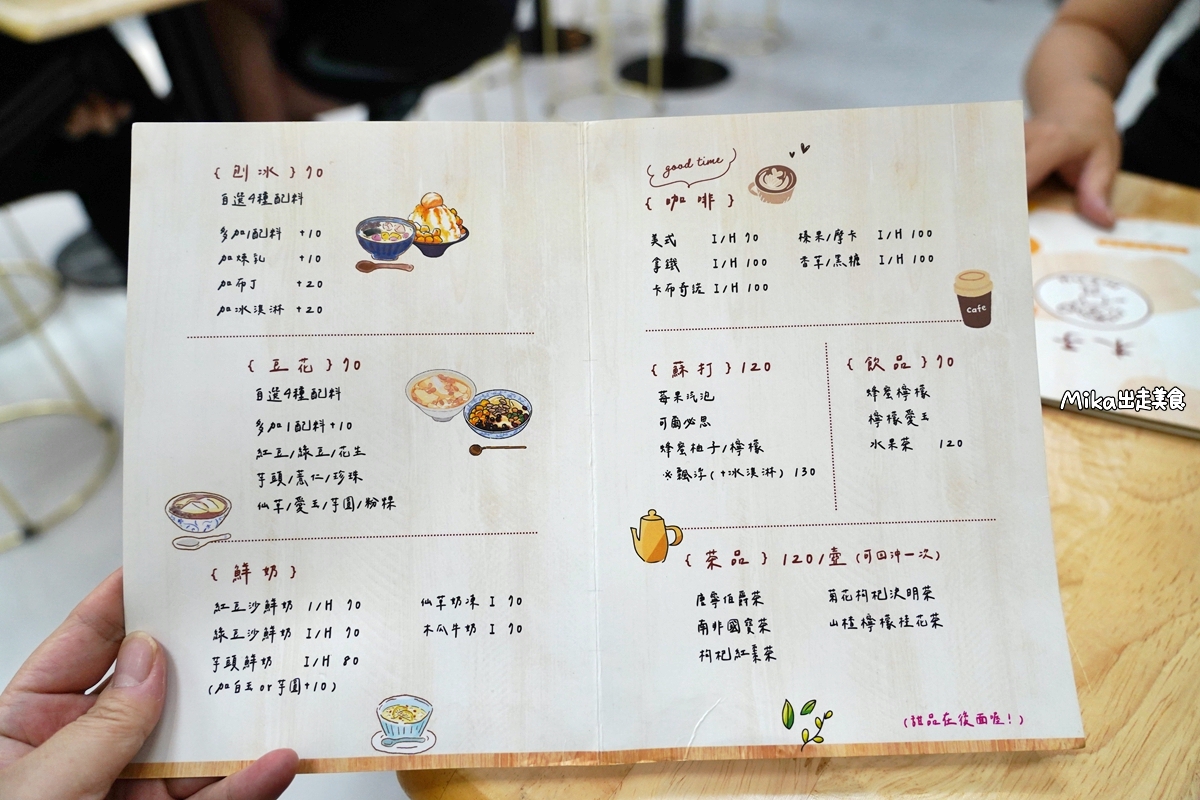 { 刨冰 } 70
自選4種配料
多加1配料 +10
加煉乳 +10
加布丁 +20
加冰淇淋 +20
{ 豆花 } 70
自選4種配料
多加1配料+10
紅豆/綠豆/花生
芋頭/薏仁/珍珠
仙草/愛玉/芋圓/粉粿
{ 鮮奶 }
紅豆沙鮮奶 I/H 70
綠豆沙鮮奶 I/H 70
芋頭鮮奶 I/H 80
(加白玉or芋圓+10)
仙草奶凍 I 70
木瓜牛奶 I 70
good time
{ 咖啡 }
美式 I/H 70
拿鐵 I/H 100
卡布奇諾 I/H 100
榛果/摩卡 I/H 100
香草/黑糖 I/H 100
Cafe
{ 蘇打 } 120
莓果汽泡
可爾必思
蜂蜜柚子/檸檬
※飄浮(+冰淇淋) 130
{ 飲品 } 70
蜂蜜檸檬
檸檬愛玉
水果茶 120
{ 茶品 } 120/壺 (可回沖一次)
唐寧伯爵茶
南非國寶茶
枸杞紅棗茶
菊花枸杞決明茶
山楂檸檬桂花茶
(甜品在後面喔!)
Mika出走美食